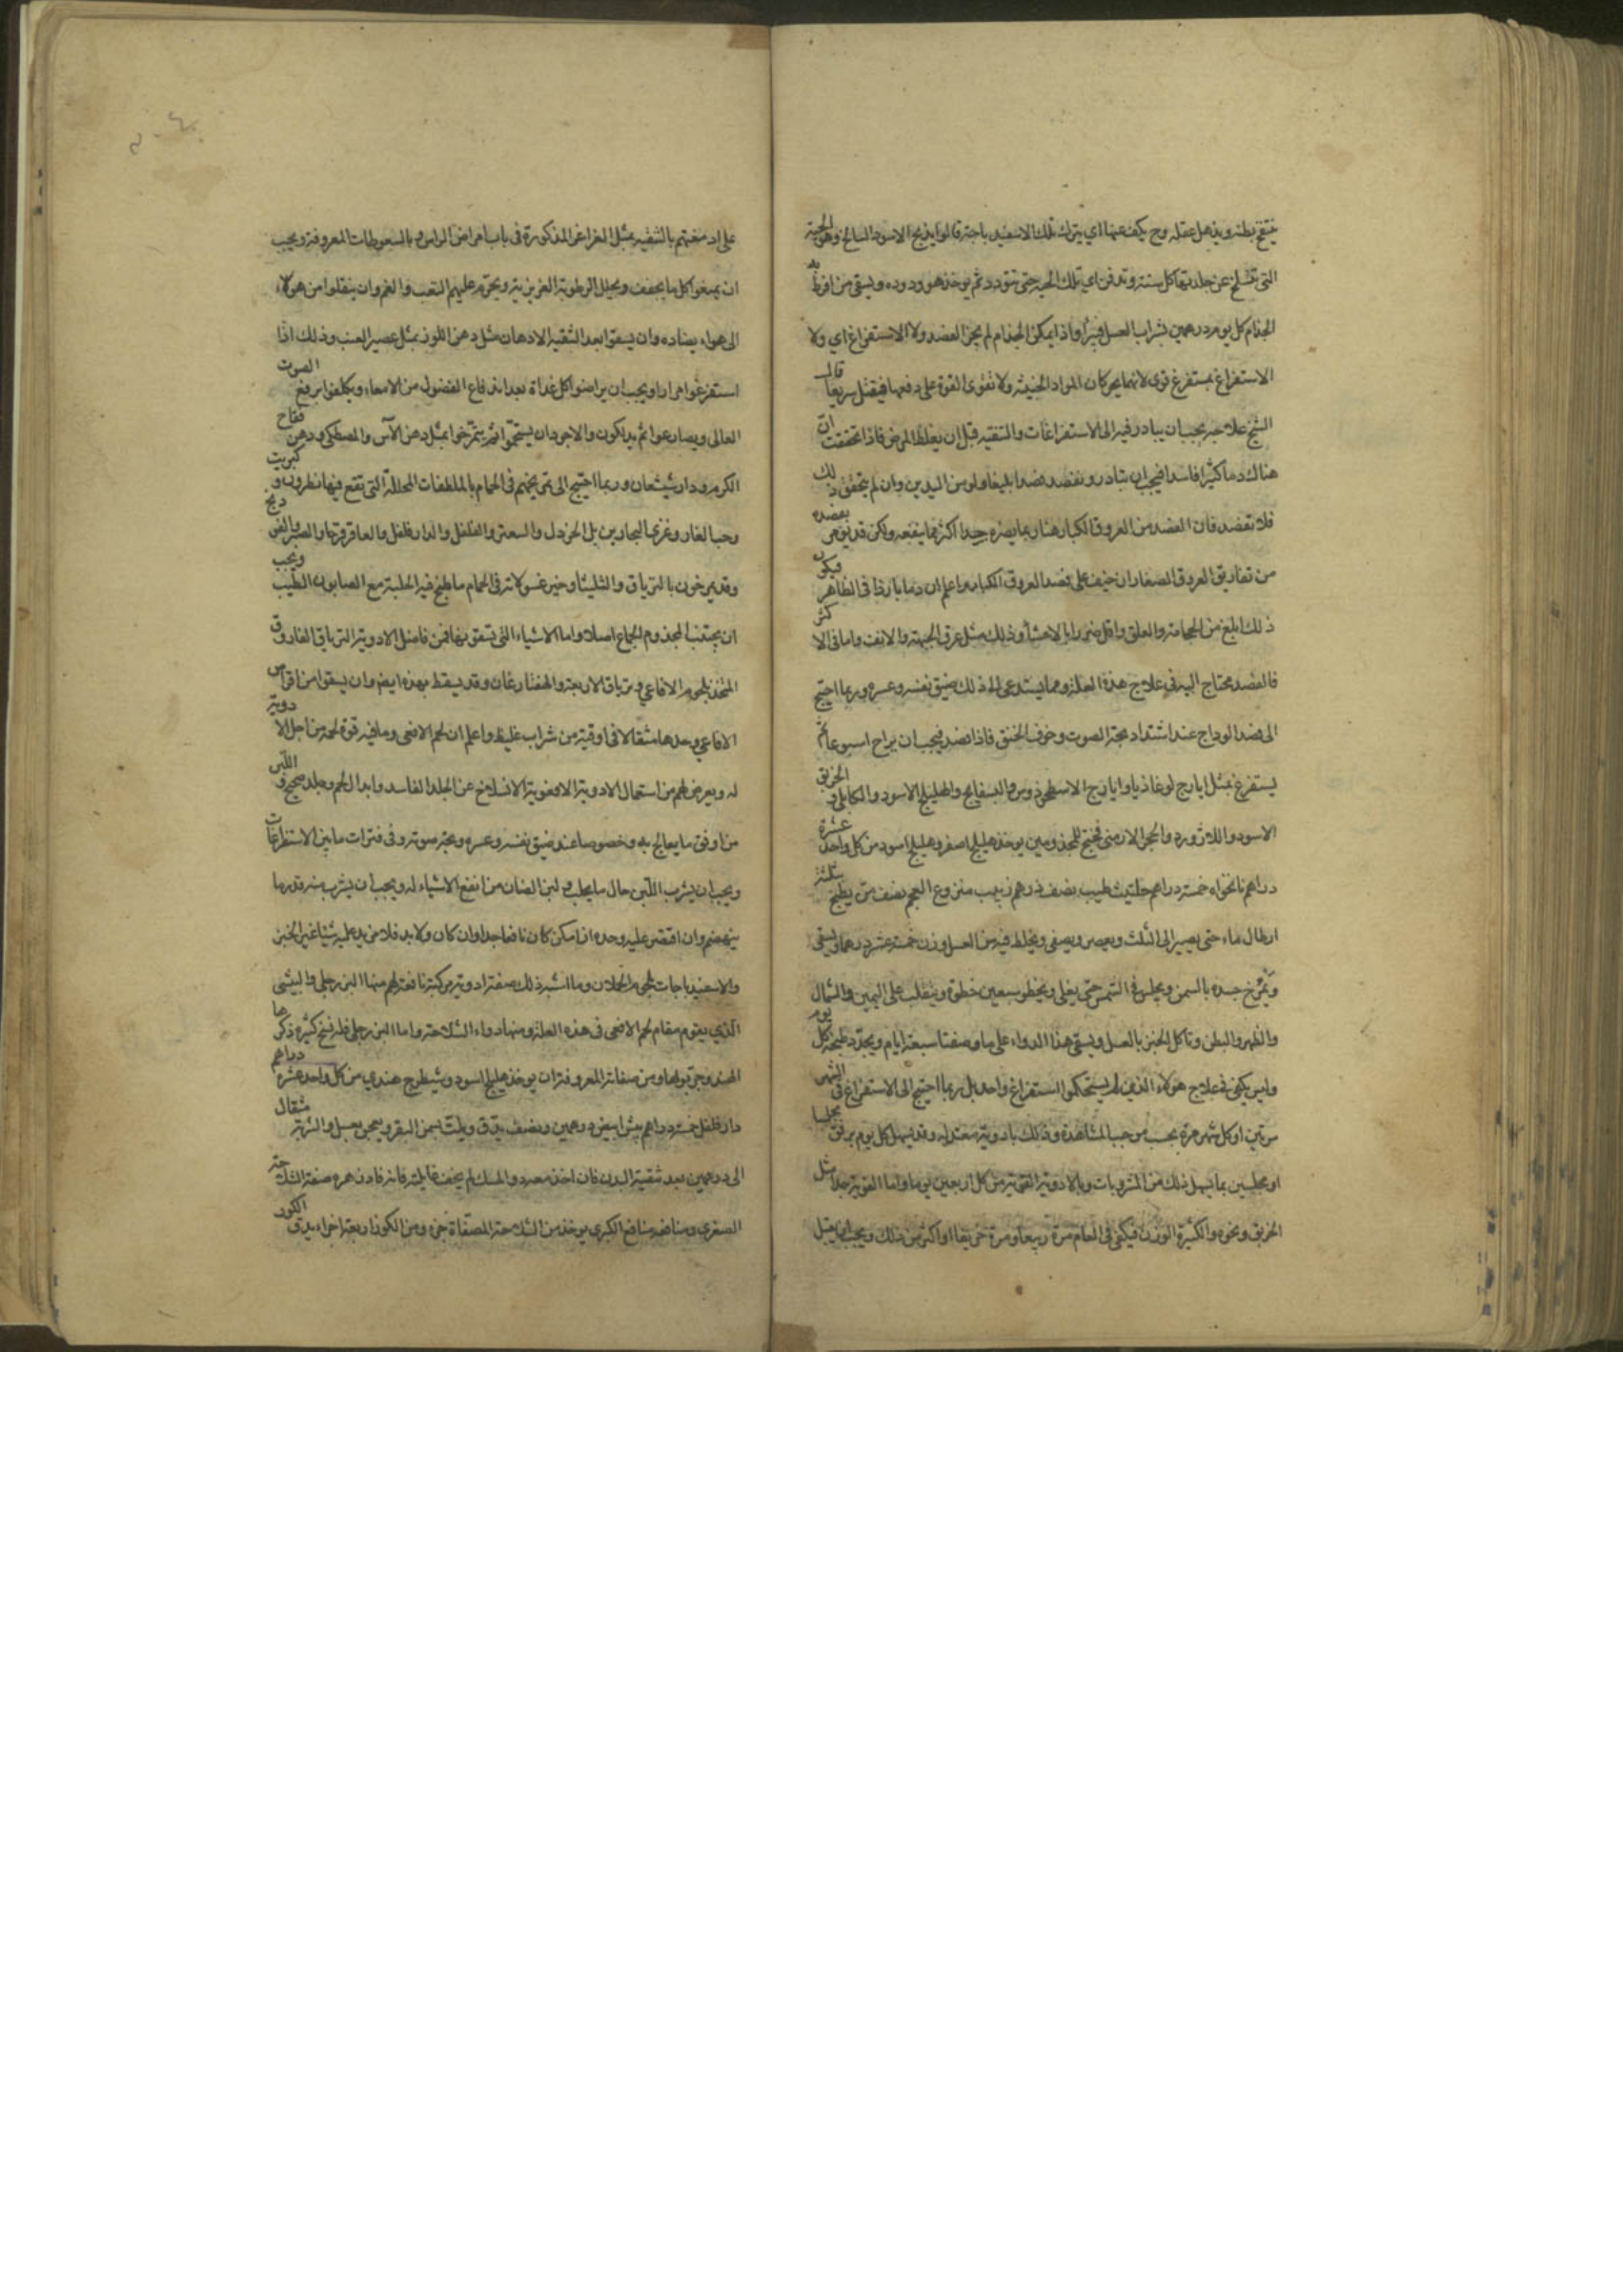 ينتفخ بطنه ويذهل عقله وح يكف عنها اي يترك تلك الاسفيدباجة قالوا يذبح الاسود السالخ وهو الحية
التي تنسلخ عن جلدتها كل سنة وتدفن اي تلك الحية حتى تتدود ثم يوخذ هو ودوده ويسقى من افرط به
الجذام كل يوم درهمين بشراب العسل فيبرأ واذا تمكن الجذام لم يجز الفصد ولا الاستفراغ اي ولا
الاستفراغ بمستفرغ قوى لانهما يحركان المواد الخبيثة ولا تقوى القوة على دفعها فيقتل سريعا قال
الشيخ علاجه يجب ان يبادر فيه الى الاستفراغات والتنقيه قبل ان يغلظ المرض فاذا تحققت ان
هناك دما كثيرا فاسدا فيجب ان تبادر وتفصد فصدا بليغا ولو من اليدين وان لم يتحقق ذلك
فلا تفصد فان الفصد من العروق الكبار هنا ربما يضره جدا اكثر مما ينفعه ولكن قد يومر بفصده
من تفاريق العروق الصغار ان خيف على فصد العروق الكبار واعلم ان دما بارزا في الظاهر فيكون
ذلك ابلغ من الحجامة والعلق واقل ضررا بالاحشأ وذلك مثل عرق الجبهة والانف واما في الاكثر
فالفصد محتاج اليه في علاج هذة العلة ومما يستدعى الى ذلك ضيق نفسه وعسره وربما احتيج
الى فصد الوداج عند اشتداد بحة الصوت وخوف الخنق فاذا فصد فيجب ان يراح اسبوعا ثم
يستفرغ بمثل ايارج لوغاذيا وايارج الاسطوخوذوس والبسفايج والهليلج الاسود والكابلى والخربق
الاسود واللازورد والحجر الارمنى طبيخ للمجذومين يوخذ هليلج اصفر وهليلج اسود من كل واحد عشرة
دراهم نانخواه خمسة دراهم حلتيث طيب نصف درهم زبيب منزوع العجم نصف من يطبخ بثلثة
ارطال ماء حتى يصير الى الثلث ويعصر ويصفى ويخلط فيه من العسل وزن خمسة عشر درهما ويسقى
ويمرخ جسده بالسمن ويجلس فى الشمس حتى يغلى ويخطو سبعين خطوة ويتقلب على اليمين والشمال
والظهر والبطن وتاكل الخبز بالعسل ويسقى هذا الدواء على ما وصفنا سبعة ايام ويجدد طبخه كل يوم
وليس يكفى فى علاج هولاء الذين لم يستحكموا استفراغ واحد بل ربما احتيج الى الاستفراغ فى الشهر
مرتين او كل شهر مرة بحسب موجب المشاهدة وذلك بادوية معتدله وقد يسهل كل يوم برفق مجلسا
او مجلسين بما يسهل ذلك من المشروبات وبالادوية القوية من كل اربعين يوما واما القوية جدا مثل
الخربق ونحوه والكثيرة الوزن فيكفى فى العام مرة ربيعا ومرة خريفا او اكثر من ذلك ويجب ان يقبل
على ادمغتهم بالتنقيه بمثل الغراغر المذكورة فى باب امراض الراس وبالسعوطات المعروفة ويجب
ان يمنعوا كل ما يجفف ويحلل الرطوبة الغريزية ويحرم عليهم التعب والغم وان ينقلوا من هواء
الى هواء يضاده وان يسقوا بعد التنقيه الادهان مثل دهن اللوز بمثل عصير العنب وذلك اذا
استفرغوا مرارا ويجب ان يراضوا كل غداة بعد اندفاع الفضول من الامعاء ويكلفوا برفع الصوت
العالى ويصارعوا ثم يدلكون والاجود ان يستحموا ثم يتمرخوا بمثل دهن الآس والمصطكى ودهن فقاح
الكرم ودارشيشعان وربما احتيج الى تمريخهم فى الحمام بالملطفات المحللة التى تقع فيها نطرون وكبريت
وحب الغار وغرى النجارين بل الخردل والسعتر والفلفل والدارفلفل والعاقرقرحا والصبر والفودنج
وقد يمرخون بالترياق والشليثا وخير غسولاته فى الحمام ما طبخ فيه الحلبة مع الصابون الطيب ويجب
ان يجتنب المجذوم الجماع اصلا واما الاشياء التى تسقونها فمن فاضل الادوية الترياق الفاروق
المتخذ بلحوم الافاعي وترياق الاربعة والهفتارغان وقد يسقط بهذه ايضا وان يسقوا من اقراص
الافاعي وحدها مثقالا فى اوقية من شراب غليظ واعلم ان لحم الافعى وما فيه قوة لحمه من اجل الادوية
له ويعرض لهم من استعمال الادوية الافعوية الانسلاخ عن الجلد الفاسد وابدال لحم وجلد صحيح واللبن
من اوفق ما يعالج به وخصوصا عند ضيق نفسه وعسره وبحة صوته وفى فترات ما بين الاستفراغات
ويجب ان يشرب اللبن حال ما يحلب ولبن الضان من انفع الاشياء له ويجب ان يشرب منه قدر ما
ينهضم وان اقتصر عليه وحده ان امكن كان نافعا جدا وان كان ولا بد فلا يزيد عليه شيئا غير الخبز
والاسفيدباجات بلحوم الحملان وما اشبه ذلك صفة ادوية مركبة نافعة لهم منها البزرجلى والبيشى
الذي يقوم مقام لحم الافعى فى هذه العلة ومنها دواء السلاحة واما البزرجلى فله نسخ كثيره ذكرها
الهند وجربوها ومن صفاته المعروفة ان يوخذ هليلج اسود وشيطرج هندي من كل واحد عشره دراهم
دارفلفل خمسة دراهم بيش ابيض درهمين ونصف يدق ويلت بسمن البقر ويعجن بعسل والشربة مثقال
الى درهمين بعد تنقية البدن فان اخذ معه دواء المسك لم يخف غايلته فانه فادزهره صفة السلاحة
الصغرى ومنافعه منافع الكبرى يوخذ من السلاحة المصفاة جزء ومن الكور اربعة اجزاء يدق الكور